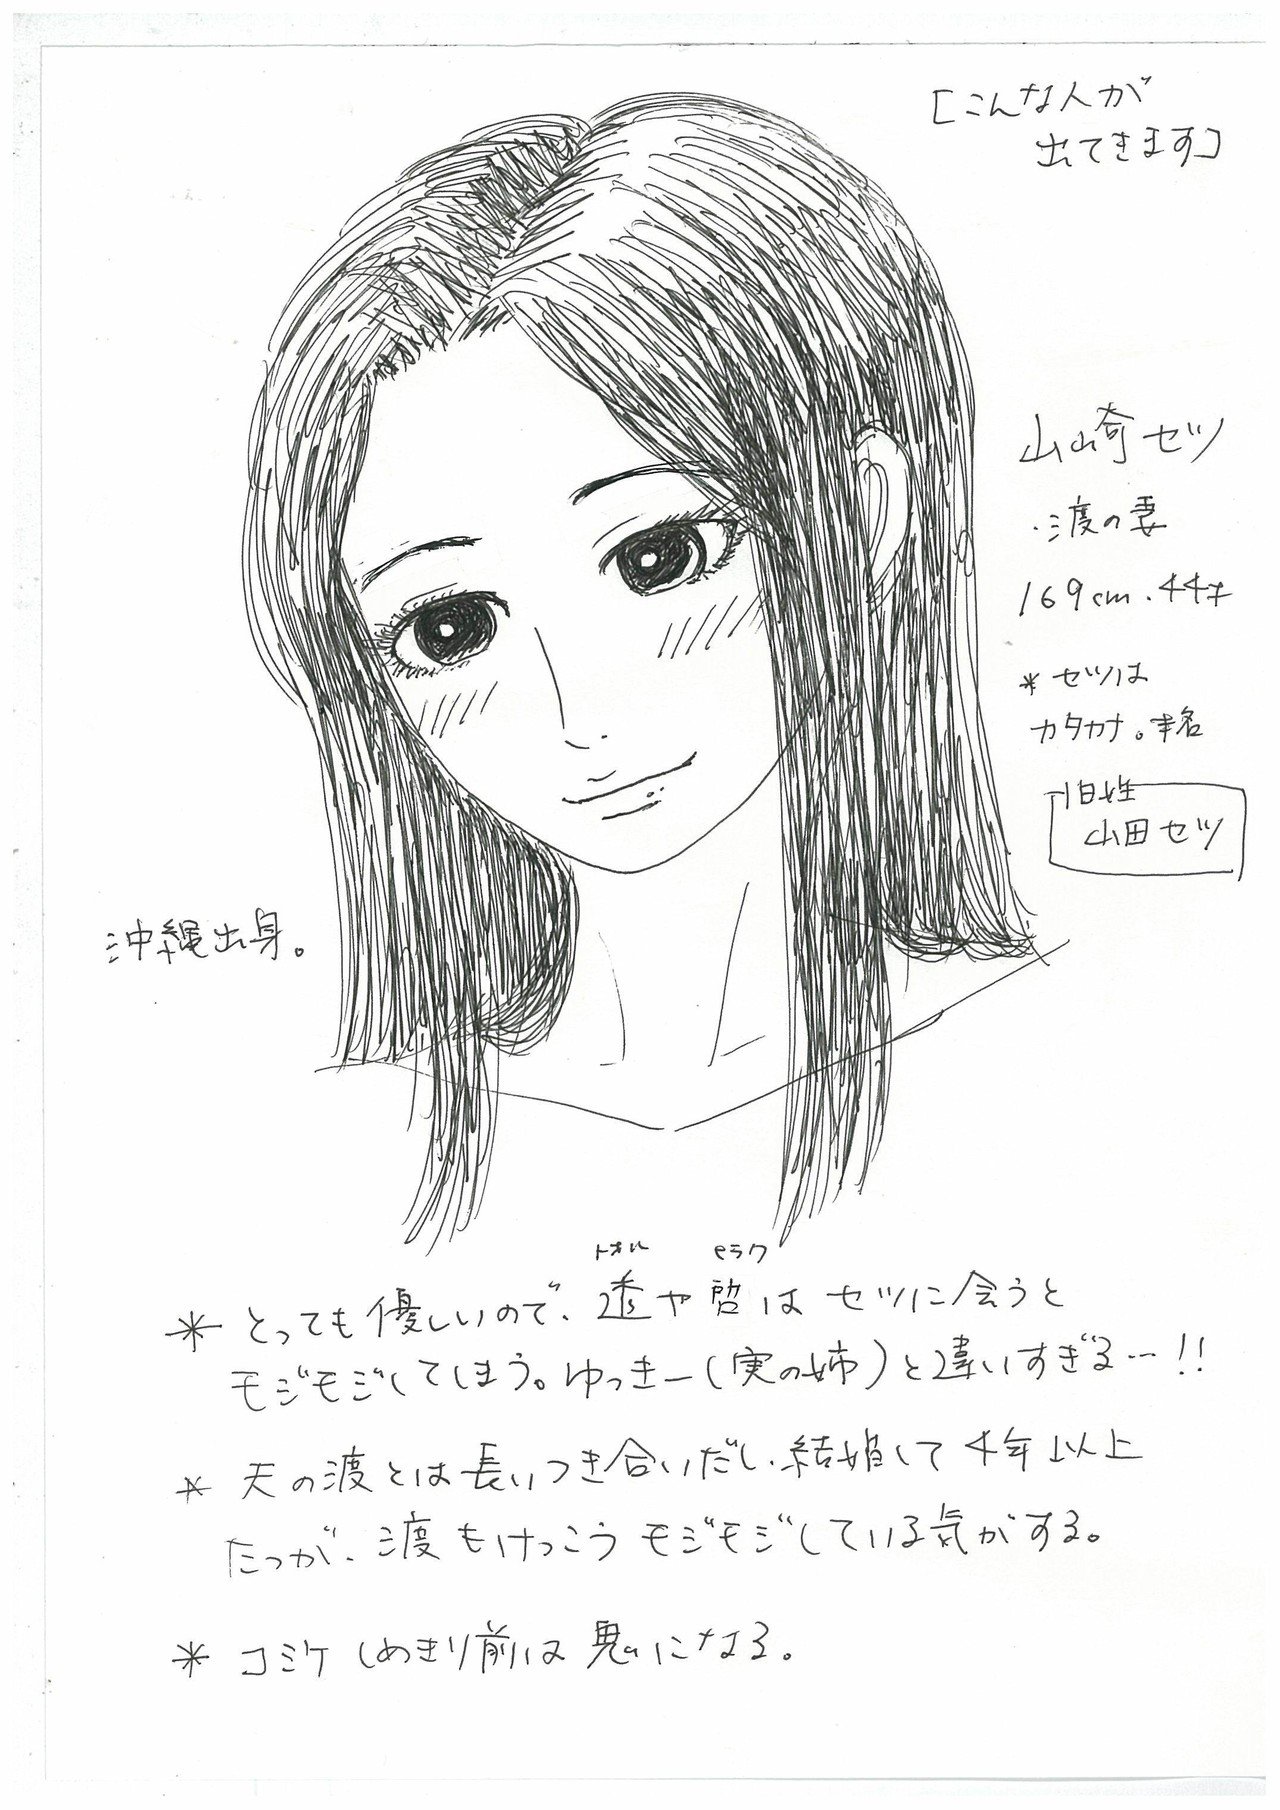 [こんな人が
出てきます]
山崎セツ
・渡の妻
169cm.44才
*セツは
カタカナ。本名
旧姓
山田セツ
沖縄出身。
トオル ヒラク
*とっても優しいので、透や啓はセツに会うと
モジモジしてしまう。ゆっきー(実の姉)と違いすぎる…!!
*夫の渡とは長いつき合いだし、結婚して4年以上
たつが、渡もけっこうモジモジしている気がする。
*コミケしめきり前は鬼になる。